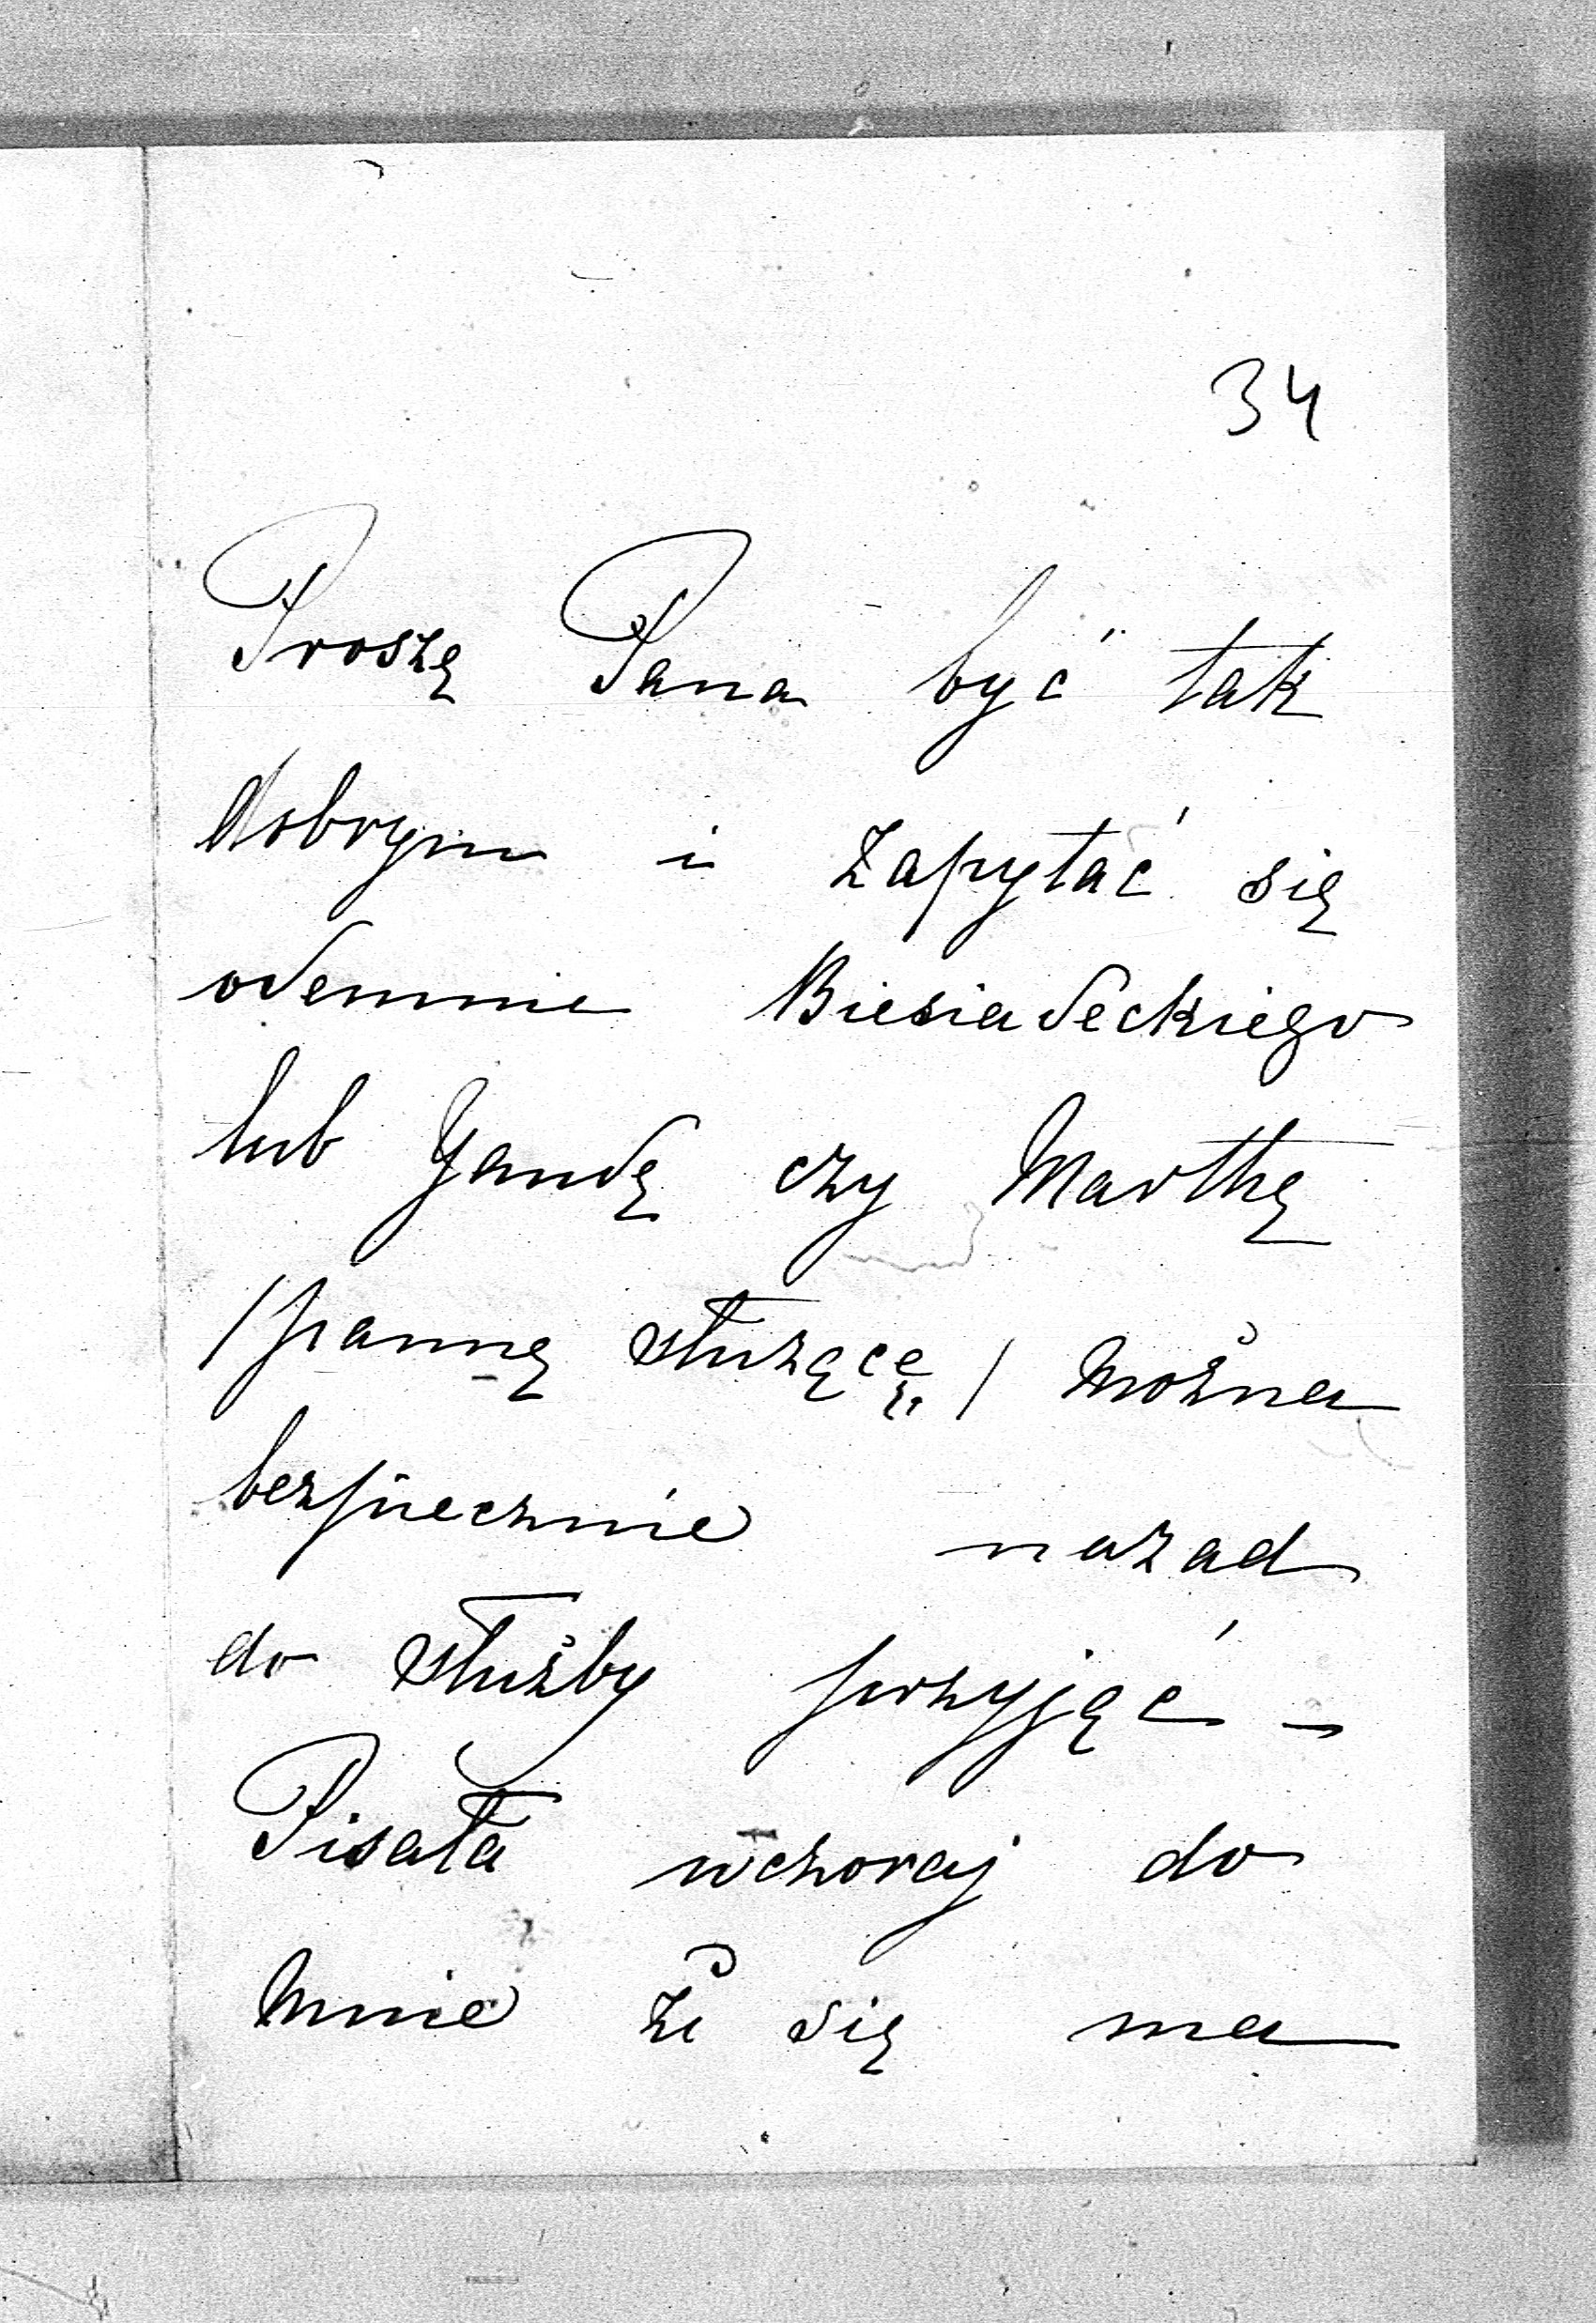 34
Proszę Pana być tak
dobrym i zapytać się
odemnie Biesiadeckiego
lub Yandę czy Marthę
/pannę służącę/ można
bezpiecznie nazad
do służby przyjąć –
Pisała wczoraj do
mnie że się ma